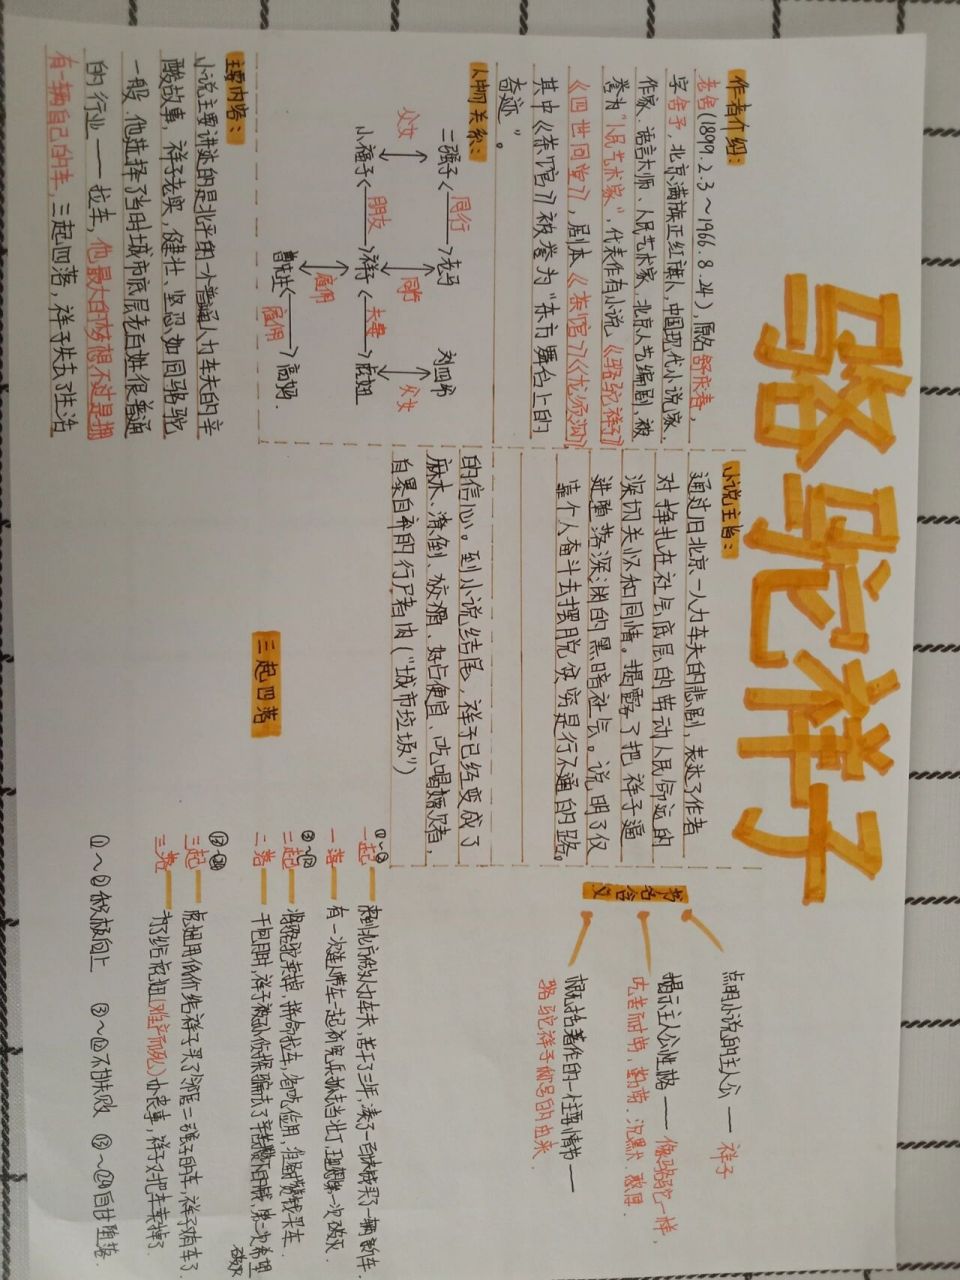 骆驼祥子
作者介绍：
老舍(1899.2.3～1966.8.24)，原名舒庆春，
字舍予，北京满族正红旗人，中国现代小说家、
作家、语言大师、人民艺术家、北京人艺编剧，被
誉为“人民艺术家”，代表作有小说《骆驼祥子》
《四世同堂》，剧本《茶馆》《龙须沟》
其中《茶馆》被誉为“东方舞台上的
奇迹”。
人物关系：
二强子 同行 老马 刘四爷
父女 同行 父女
小福子 朋友 祥子 夫妻 虎妞
雇佣
曹先生 雇佣 高妈.
主要内容：
小说主要讲述的是北平的一个普通人力车夫的辛
酸故事，祥子老实，健壮、坚忍如同骆驼
一般. 他选择了当时城市底层老百姓很普通
的行业——拉车，他最大的梦想不过是拥
有一辆自己的车，三起四落，祥子失去了生活
小说主旨：
通过旧北京一人力车夫的悲剧，表达了作者
对挣扎在社会底层的劳动人民命运的
深切关怀和同情。揭露了把祥子逼
进堕落深渊的黑暗社会。说明了仅
靠个人奋斗去摆脱贫穷是行不通的路。
的信心。到小说结尾，祥子已经变成了
麻木、潦倒、狡猾、好占便宜、吃喝嫖赌，
自暴自弃的行尸走肉(“城市垃圾”)
书名含义
点明小说的主人公——祥子
揭示主人公性格——像骆驼一样，
吃苦耐劳，勤劳、沉默、憨厚.
概括著作的一住要情节——
骆驼祥子称号的由来.
三起四落
一起——来到北京做人力车夫，苦干了三年，凑了一百块钱买了一辆新车.
一落——有一次连人带车一起被宪兵抓去当壮丁，理想第一次破灭.
二起——将骆驼卖掉，拼命拉车，省吃俭用，准备攒钱买车.
二落——干包月时，祥子被孙侦探骗去了辛苦攒下的钱，第二次希望
破灭
三起——虎妞用低价给祥子买了邻居二强子的车，祥子又有车了
三落——为了给虎妞(难产而死)办丧事，祥子又把车卖掉了.
自甘堕落.